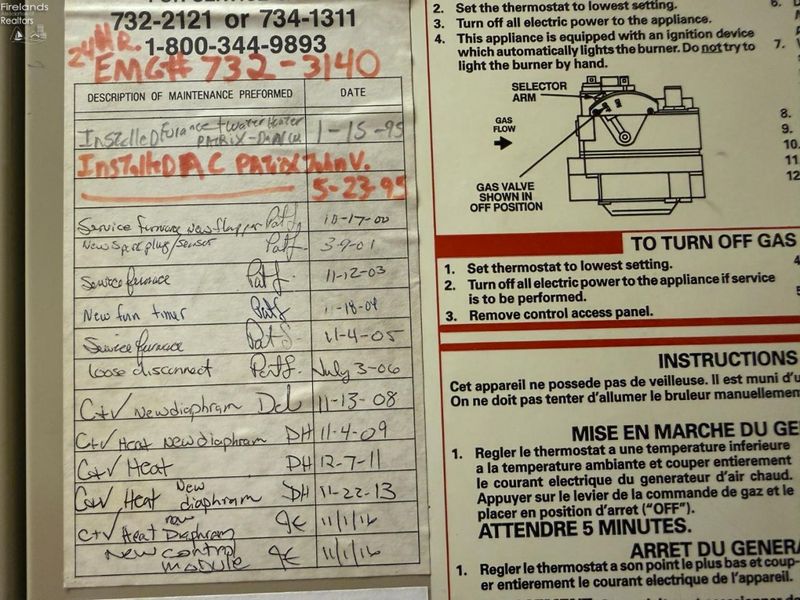 Firelands
Association of
Realtors
732-2121 or 734-1311
1-800-344-9893
24 HR.
EMG# 732-3140
DESCRIPTION OF MAINTENANCE PREFORMED DATE
Installed Furance + Water Heater 1-15-95
PATRIX
Installed AC PATRIX John V.
5-23-95
Service furnace new flapper Pat J. 10-17-00
New Spark plug/sensor Pat J. 3-9-01
Service furnace Pat J. 11-12-03
New furn timer Pat J. 11-18-04
Service furnace Pat J. 11-4-05
loose disconnect Pat J. July 3-06
C+V New diaphram Del 11-13-08
C+V Heat New diaphram DH 11-4-09
C+V Heat DH 12-7-11
C+V Heat New diaphram DH 11-22-13
C+V Heat new Diaphram 11/1/16
New control module 11/1/16
2. Set the thermostat to lowest setting.
3. Turn off all electric power to the appliance.
4. This appliance is equipped with an ignition device
which automatically lights the burner. Do not try to
light the burner by hand.
SELECTOR
ARM
GAS
FLOW
GAS VALVE
SHOWN IN
OFF POSITION
6.
7.
8.
9.
10.
11.
12
TO TURN OFF GAS
1. Set thermostat to lowest setting.
2. Turn off all electric power to the appliance if service
is to be performed.
3. Remove control access panel.
INSTRUCTIONS
Cet appareil ne possede pas de veilleuse. Il est muni d'u
On ne doit pas tenter d'allumer le bruleur manuellemen
MISE EN MARCHE DU GE
1. Regler le thermostat a une temperature inferieure
a la temperature ambiante et couper entierement
le courant electrique du generateur d'air chaud.
Appuyer sur le levier de la commande de gaz et le
placer en position d'arret ("OFF").
ATTENDRE 5 MINUTES.
ARRET DU GENERA
1. Regler le thermostat a son point le plus bas et coup-
er entierement le courant electrique de l'appareil.